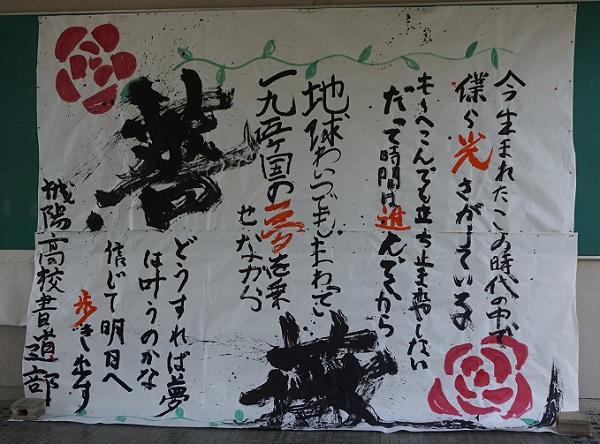 今生まれたこの時代の中で
僕ら光さがしている
へこんでも立ち止ま しない
だって時間は進んでくから
地球はいつでもまわってい
一九五ヶ国の夢を乗
せながら
薔
薇
どうすれば夢
は叶うのかな
信じて明日へ
歩き出す
城陽高校書道部